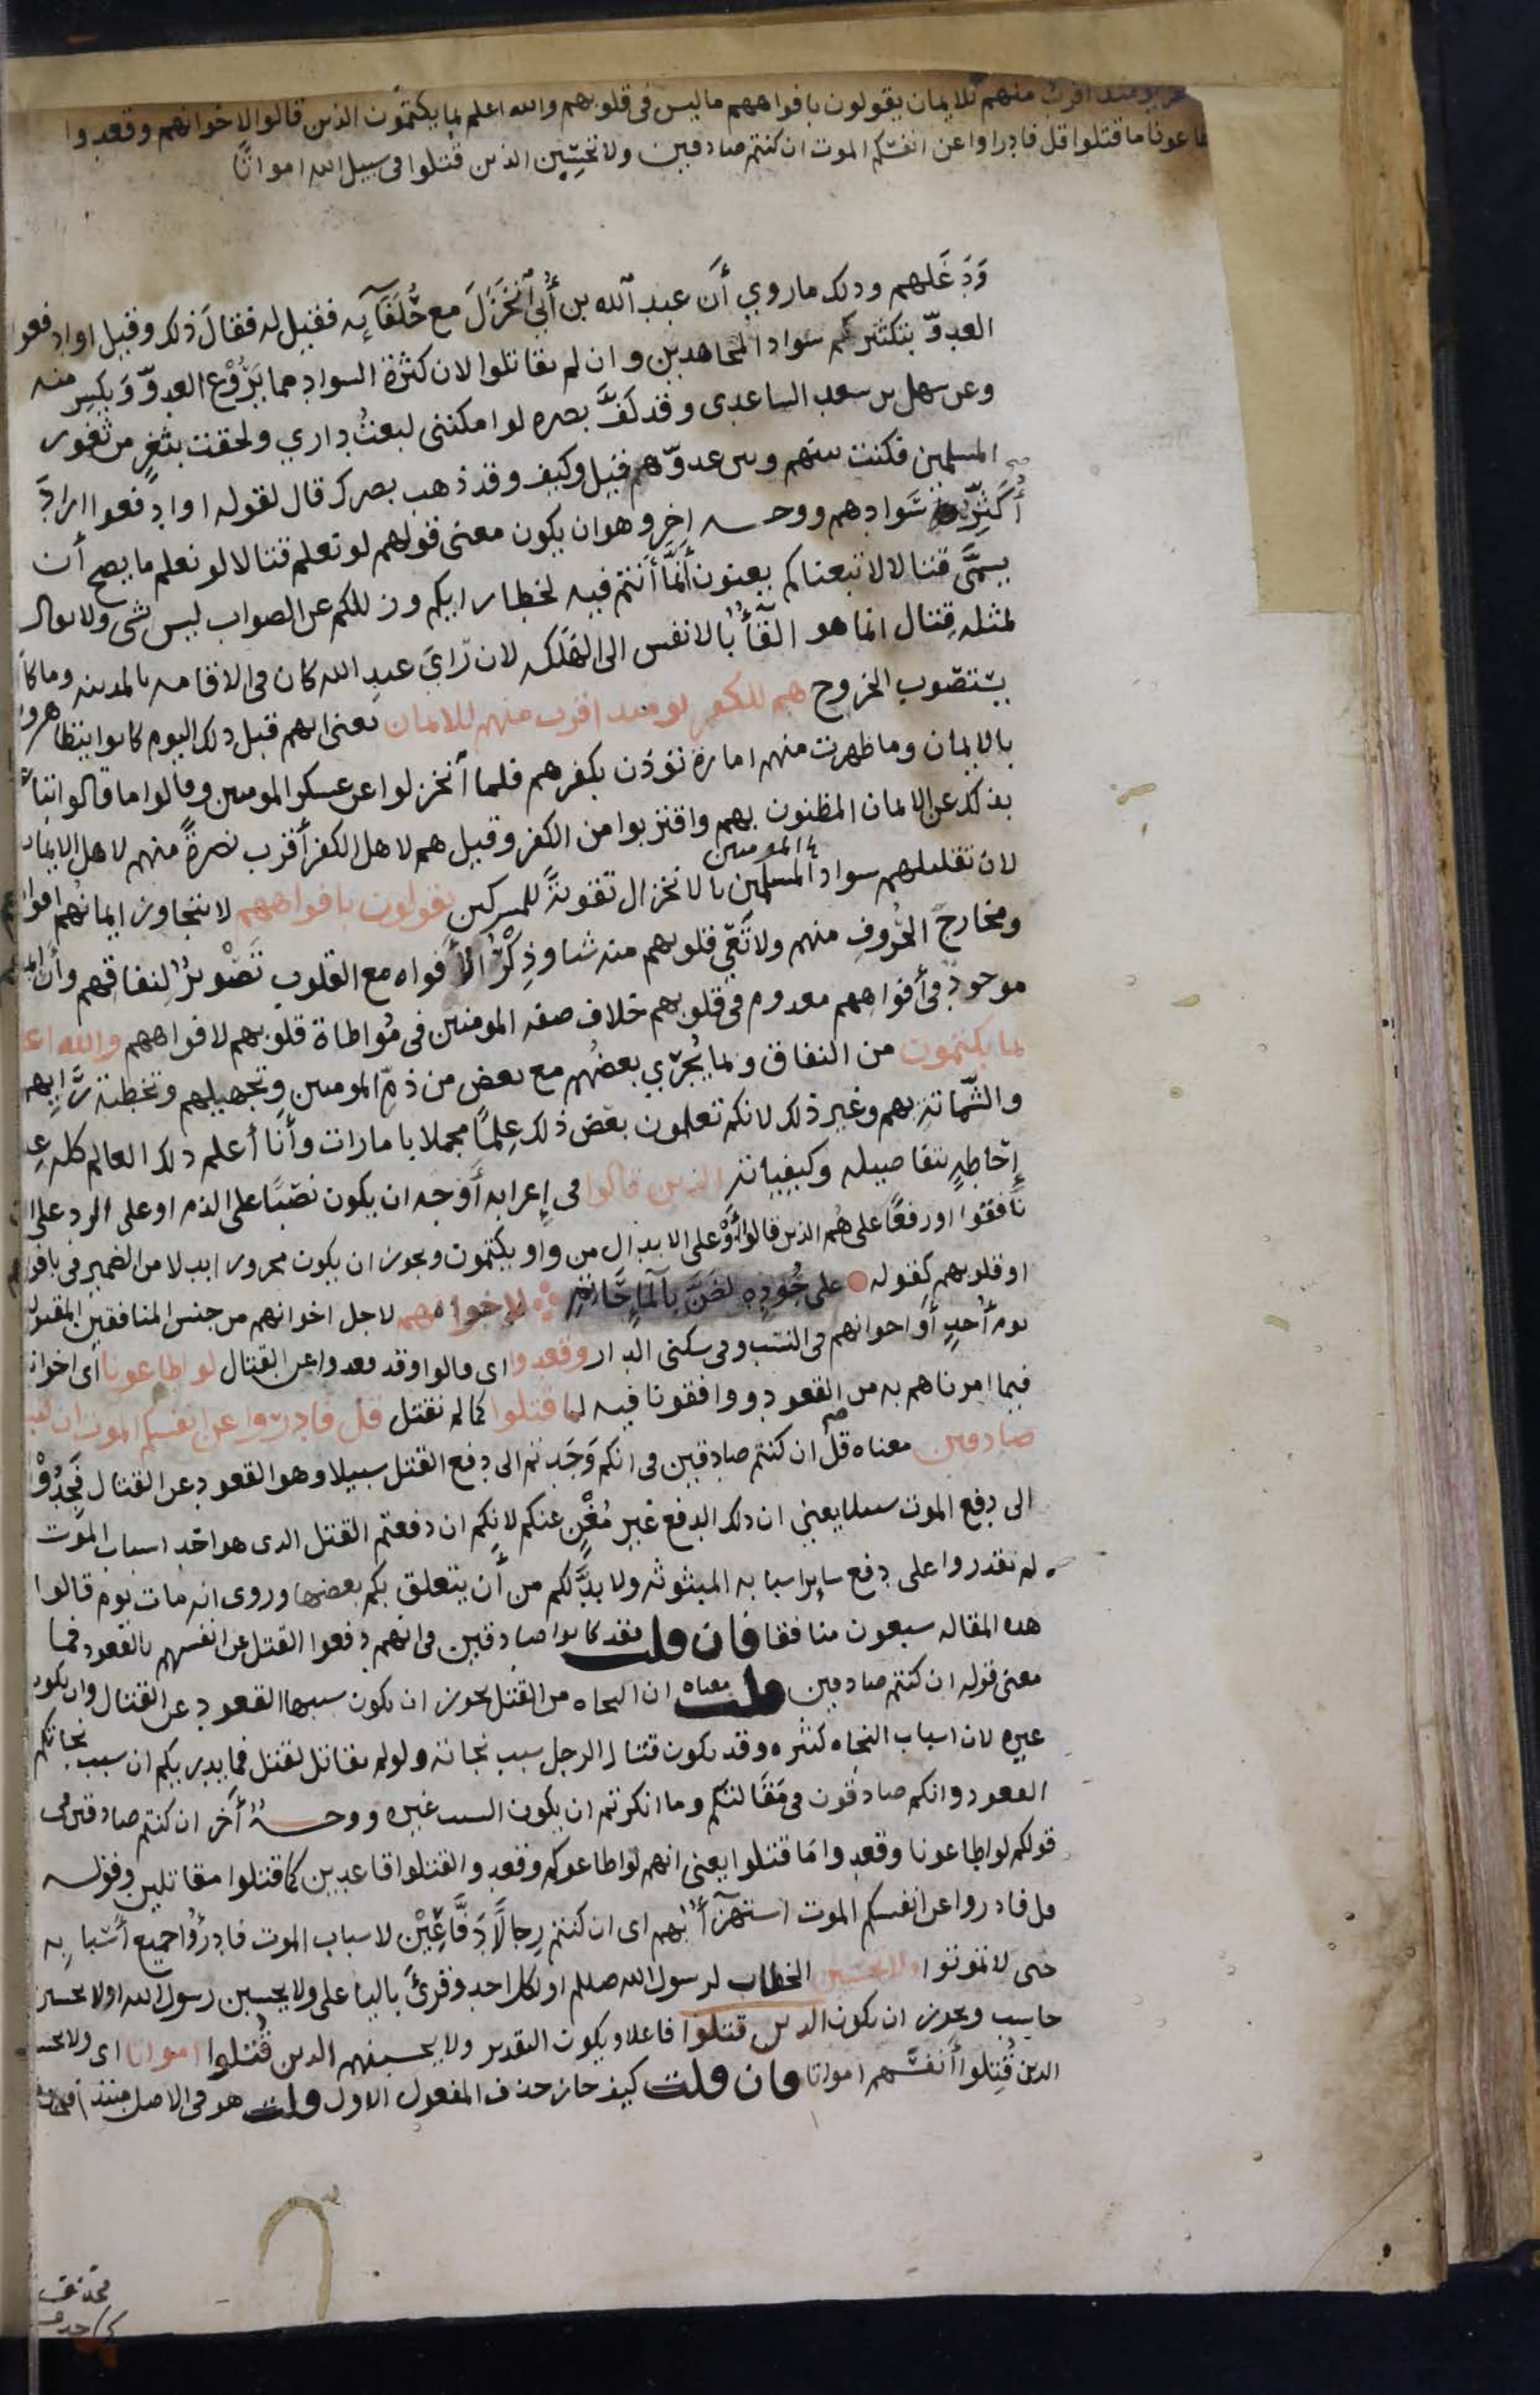 منهم للايمان يقولون بافواههم ماليس في قلوبهم والله اعلم بما يكتمون الذين قالوا لاخوانهم وقعدوا
ما قتلوا قل فادراوا عن انفسكم الموت ان كنتم صادقين ولا تحسبن الذين قتلوا في سبيل الله امواتا
وَدَغَلهم وذلك ما روي أن عبد الله بن أُبي انخزلَ مع حُلَفَآيه فقيل له فقالَ ذلك وقيل او ادفعوا
العدوّ بتكثيركم سواد المجاهدين وان لم تقاتلوا لان كثرة السواد مما يَرُوْع العدوّ وَيكسِر منه
وعن سهل بن سعد الساعدى وقد كُفَّ بصره لو امكننى لبعتُ داري ولحقت بثغرٍ من ثغور
المسلمين فكنت بينهم وبين عدوّهم قيل وكيف وقد ذهب بصرك قال لقوله او ادفعوا ارادَ
أُكَثِّرُ سَوادهم ووجه اخر وهو ان يكون معنى قولهم لو نعلم قتالا لو نعلم ما يصح أن
يسمَّى قتالا لاتبعناكم يعنون أنَّما أنتم فيه لخطا رايكم وزللكم عن الصواب ليس بشى ولا يقال
لمثله قِتال انما هو القآءُ بالانفس الى التهلكه لان رَايَ عبد الله كان فى الاقامه بالمدينه وما كان
يستصوب الخروج هم للكفر يومئذ اقرب منهم للايمان يعنى انهم قبل ذلك اليوم كانوا يتظاهرون
بالايمان وما ظهرت منهم امارة تؤذن بكفرهم فلما انخزلوا عن عسكر المومنين وقالوا ما قالوا تباعدوا
بذلك عن الايمان المظنون بهم واقتربوا من الكفر وقيل هم لاهل الكفر أقرب نصرةً منهم لاهل الايمان
لان تقليلهم سواد المسلمين المومنين بالانخزال تقويةً للمشركين يقولون بافواههم لا يتجاوز ايمانهم افواههم
ومخارجَ الحُروف منهم ولا تَعِي قلوبهم منه شيا وذِكْرُ الأفواه مع القلوب تَصْويرٌ لنفاقهم وأن ايمانهم
موجودٌ في أفواههم معدوم في قلوبهم خلاف صفه المومنين في مُواطاة قلوبهم لافواههم والله اعلم
بما يكتمون من النفاق وبما يُجْري بعضُهم مع بعض من ذمّ المومنين وتجهيلهم وتخطئة رَايهم
والشَّماتةِ بهم وغير ذلك لانكم تعلمون بعضَ ذلك عِلمًا مجملا بامارات وأنا أعلم ذلك العالم كله علم
إحَاطةٍ بتفاصيله وكيفياته الذين قالوا في إعرابه أَوْجه ان يكون نصْبًا على الذم او على الرد على الذين
نافقوا او رفعًا على هُم الذين قالوا أوْ على الابدال من واو يكتمون ويجوز ان يكون مجرورا بدلا من الضمير في بافواههم
او قلوبهم كقوله على جُوْدِه لضَنَّ بالماءِ حَاتِمِ لإخوانهم لاجل اخوانهم من جنس المنافقين المقتولين
يوم أحدٍ أو اخوانهم فى النسَب وفى سكنى الدار وقعدوا اى قالوا وقد قعدوا عن القتال لو اطاعونا اى اخواننا
فيما امرناهم به من القعود ووافقونا فيه لما قتلوا كما لم نقتل قل فادروا عن انفسكم الموت ان كنتم
صادقين معناه قل ان كنتم صادقين فى انكم وَجَدتم الى دفع القتل سبيلا وهو القعود عن القتال فَجِدُوْا
الى دفع الموت سبيلا يعني ان ذلك الدفع غير مُغْنٍ عنكم لانكم ان دفعتم القتل الذى هو احَد اسباب الموت
لم تقدروا على دفع ساير اسبابه المبثوثه ولا بدَّ لكم من أن يتعلق بكم بعضها وروى انه مات يوم قالوا
هذه المقاله سبعون منافقا فان قلت فقد كانوا صادقين فى انهم دفعوا القتل عن انفسهم بالقعود فما
معنى قوله ان كنتم صادقين قلت معناه ان النجاه من القتل يجوز ان يكون سببها القعود عن القتال وان يكون
غيره لان اسباب النجاه كثيره وقد يكون قتال الرجل سبب نجاته ولو لم يقاتل لقتل فما يدريكم ان سبب نجاتكم
القعود وانكم صادقون فى مَقَالتكم وما انكرتم ان يكون السبب غيره ووجهٌ آخر ان كنتم صادقين فى
قولكم لو اطاعونا وقعدوا مَا قتلوا يعنى انهم لو اطاعوكم وقعدوا لقتلوا قاعدين كما قتلوا مقاتلين وقوله
قل فادروا عن انفسكم الموت استهزآءٌ بهم اى ان كنتم رِجالًا دَفَّاعِيْن لاسباب الموت فادرؤا جميع أسْبابِه
حتى لا تموتوا ولا تحسبن الخطاب لرسول الله صلعم او لكل احد وقرئَ باليا على ولا يحسبن رسول الله او لا يحسبن
حاسب ويجوز ان يكون الذين قتلوا فاعلا ويكون التقدير ولا يحسبنهم الذين قُتلوا امواتا اى ولا يحسبن
الذين قُتِلوا أنفسَهم امواتا فان قلت كيف جاز حذف المفعول الاول قلت هو فى الاصل مبتدأ